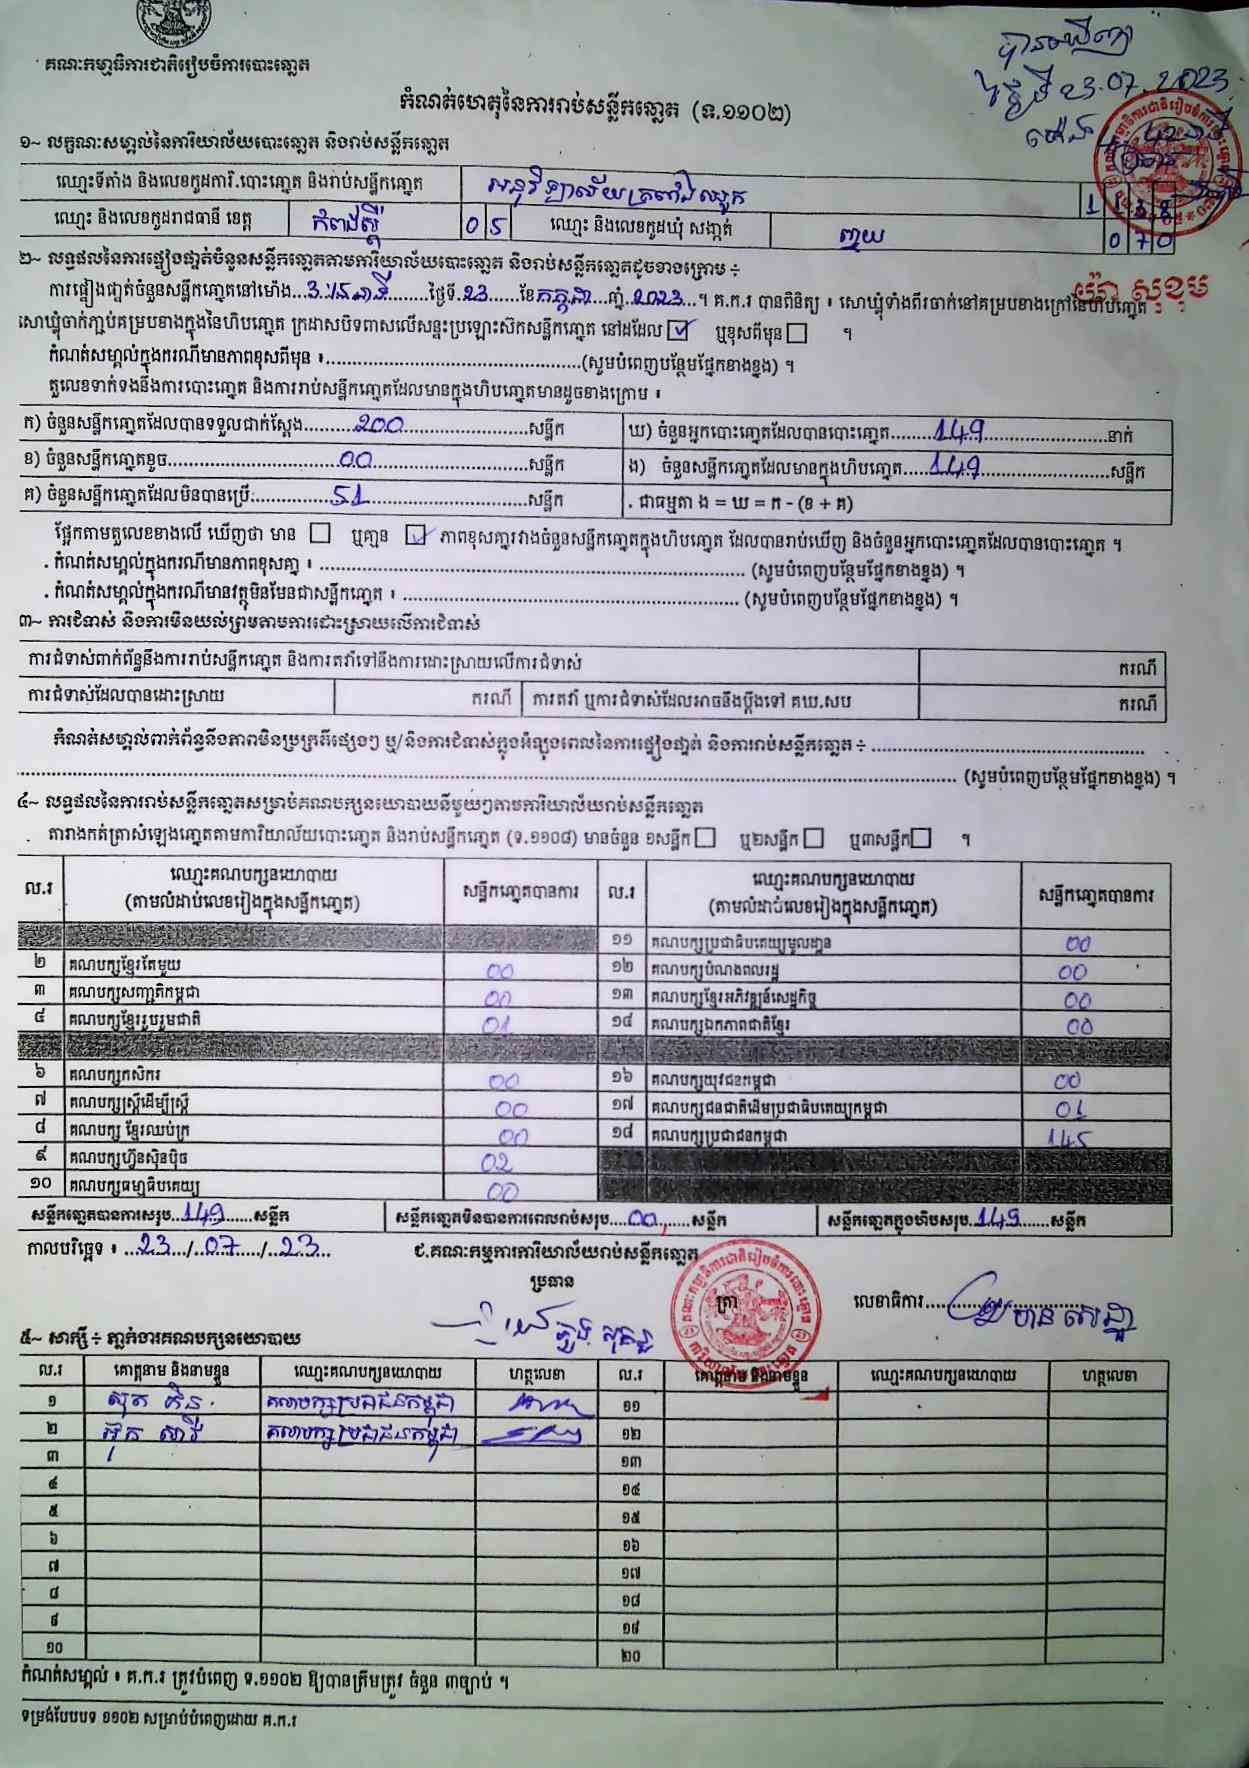 គណៈកម្មាធិការជាតិរៀបចំការបោះឆ្នោត
បានឃើញ
ថ្ងៃទី 23.07.2023
ម៉ោង
កំណត់ហេតុនៃការរាប់សន្លឹកឆ្នោត (ទ.១១០២)
១~ លក្ខណៈសម្គាល់នៃការិយាល័យបោះឆ្នោត និងរាប់សន្លឹកឆ្នោត
ឈ្មោះទីតាំង និងលេខកូដការិ.បោះឆ្នោត និងរាប់សន្លឹកឆ្នោត អនុវិទ្យាល័យត្រពាំងឈូក
ឈ្មោះ និងលេខកូដរាជធានី ខេត្ត កំពង់ស្ពឺ 0 5 ឈ្មោះ និងលេខកូដឃុំ សង្កាត់ 0 7 0
យ៉ា សុខុម
២~ លទ្ធផលនៃការផ្ទៀងផ្ទាត់ចំនួនសន្លឹកឆ្នោតតាមការិយាល័យបោះឆ្នោត និងរាប់សន្លឹកឆ្នោតដូចខាងក្រោម ÷
ការផ្ទៀងផ្ទាត់ចំនួនសន្លឹកឆ្នោតនៅម៉ោង...3:15នាទី........ថ្ងៃទី.23......ខែកក្កដា...ឆ្នាំ.2023...។ គ.ក.រ បានពិនិត្យ ៖ សោឃ្លុំទាំងពីរចាក់នៅគម្របខាងក្រៅនៃហិបឆ្នោត
សោឃ្លុំចាក់ភ្ជាប់គម្របខាងក្នុងនៃហិបឆ្នោត ក្រដាសបិទពាសលើសន្ទះប្រឡោះស៊កសន្លឹកឆ្នោត នៅដដែល ☑ ឬខុសពីមុន ☐ ។
កំណត់សម្គាល់ក្នុងករណីមានភាពខុសពីមុន ៖..............................................(សូមបំពេញបន្ថែមផ្នែកខាងខ្នង) ។
តួលេខទាក់ទងនឹងការបោះឆ្នោត និងការរាប់សន្លឹកឆ្នោតដែលមានក្នុងហិបឆ្នោតមានដូចខាងក្រោម ៖
ក) ចំនួនសន្លឹកឆ្នោតដែលបានទទួលជាក់ស្តែង..........200............................សន្លឹក ឃ) ចំនួនអ្នកបោះឆ្នោតដែលបានបោះឆ្នោត........149.............................នាក់
ខ) ចំនួនសន្លឹកឆ្នោតខូច...............................00............................សន្លឹក ង) ចំនួនសន្លឹកឆ្នោតដែលមានក្នុងហិបឆ្នោត.....149.............................សន្លឹក
គ) ចំនួនសន្លឹកឆ្នោតដែលមិនបានប្រើ...............51.............................សន្លឹក . ជាធម្មតា ង = ឃ = ក - (ខ + គ)
ផ្អែកតាមតួលេខខាងលើ ឃើញថា មាន ☐ ឬគ្មាន ☑ ភាពខុសគ្នារវាងចំនួនសន្លឹកឆ្នោតក្នុងហិបឆ្នោត ដែលបានរាប់ឃើញ និងចំនួនអ្នកបោះឆ្នោតដែលបានបោះឆ្នោត ។
. កំណត់សម្គាល់ក្នុងករណីមានភាពខុសគ្នា ៖ .......................................................................... (សូមបំពេញបន្ថែមផ្នែកខាងខ្នង) ។
. កំណត់សម្គាល់ក្នុងករណីមានវត្ថុមិនមែនជាសន្លឹកឆ្នោត ៖ ............................................................ (សូមបំពេញបន្ថែមផ្នែកខាងខ្នង) ។
៣~ ការជំទាស់ និងការមិនយល់ព្រមតាមការដោះស្រាយលើការជំទាស់
ការជំទាស់ពាក់ព័ន្ធនឹងការរាប់សន្លឹកឆ្នោត និងការតវ៉ាទៅនឹងការដោះស្រាយលើការជំទាស់ ករណី
ការជំទាស់ដែលបានដោះស្រាយ ករណី ការតវ៉ា ឬការជំទាស់ដែលអាចនឹងប្តឹងទៅ គឃ.សប ករណី
កំណត់សម្គាល់ពាក់ព័ន្ធនឹងភាពមិនប្រក្រតីផ្សេងៗ ឬ/និងការជំទាស់ក្នុងអំឡុងពេលនៃការផ្ទៀងផ្ទាត់ និងការរាប់សន្លឹកឆ្នោត ÷ ................................................
.................................................................................................................................................... (សូមបំពេញបន្ថែមផ្នែកខាងខ្នង) ។
៤~ លទ្ធផលនៃការរាប់សន្លឹកឆ្នោតសម្រាប់គណបក្សនយោបាយនីមួយៗតាមការិយាល័យរាប់សន្លឹកឆ្នោត
តារាងកត់ត្រាសំឡេងឆ្នោតតាមការិយាល័យបោះឆ្នោត និងរាប់សន្លឹកឆ្នោត (ទ.១១០៨) មានចំនួន ១សន្លឹក ☐ ឬ២សន្លឹក ☐ ឬ៣សន្លឹក ☐ ។
ល.រ ឈ្មោះគណបក្សនយោបាយ (តាមលំដាប់លេខរៀងក្នុងសន្លឹកឆ្នោត) សន្លឹកឆ្នោតបានការ ល.រ ឈ្មោះគណបក្សនយោបាយ (តាមលំដាប់លេខរៀងក្នុងសន្លឹកឆ្នោត) សន្លឹកឆ្នោតបានការ
១១ គណបក្សប្រជាធិបតេយ្យមូលដ្ឋាន 00
២ គណបក្សខ្មែរតែមួយ 00 ១២ គណបក្សបំណងពលរដ្ឋ 00
៣ គណបក្សសញ្ជាតិកម្ពុជា 00 ១៣ គណបក្សខ្មែរអភិវឌ្ឍន៍សេដ្ឋកិច្ច 00
៤ គណបក្សខ្មែររួបរួមជាតិ 01 ១៤ គណបក្សឯកភាពជាតិខ្មែរ 00
៦ គណបក្សកសិករ 00 ១៦ គណបក្សយុវជនកម្ពុជា 00
៧ គណបក្សស្ត្រីដើម្បីស្ត្រី 00 ១៧ គណបក្សជនជាតិដើមប្រជាធិបតេយ្យកម្ពុជា 01
៨ គណបក្ស ខ្មែរឈប់ក្រ 00 ១៨ គណបក្សប្រជាជនកម្ពុជា 145
៩ គណបក្សហ៊្វុនស៊ិនប៉ិច 02
១០ គណបក្សធម្មាធិបតេយ្យ 00
សន្លឹកឆ្នោតបានការសរុប..149......សន្លឹក សន្លឹកឆ្នោតមិនបានការពេលរាប់សរុប...00......សន្លឹក សន្លឹកឆ្នោតក្នុងហិបសរុប.149......សន្លឹក
កាលបរិច្ឆេទ ៖ ..23../..07...../..23...
ជ.គណៈកម្មការការិយាល័យរាប់សន្លឹកឆ្នោត
ប្រធាន
ត្រា
លេខាធិការ.......................
៥~ សាក្សី ÷ ភ្នាក់ងារគណបក្សនយោបាយ
ល.រ គោត្តនាម និងនាមខ្លួន ឈ្មោះគណបក្សនយោបាយ ហត្ថលេខា ល.រ គោត្តនាម និងនាមខ្លួន ឈ្មោះគណបក្សនយោបាយ ហត្ថលេខា
១ គណបក្សប្រជាជនកម្ពុជា ១១
២ គណបក្សប្រជាជនកម្ពុជា ១២
៣ ១៣
៤ ១៤
៥ ១៥
៦ ១៦
៧ ១៧
៨ ១៨
៩ ១៩
១០ ២០
កំណត់សម្គាល់ ៖ គ.ក.រ ត្រូវបំពេញ ទ.១១០២ ឱ្យបានត្រឹមត្រូវ ចំនួន ៣ច្បាប់ ។
ទម្រង់បែបបទ ១១០២ សម្រាប់បំពេញដោយ គ.ក.រ